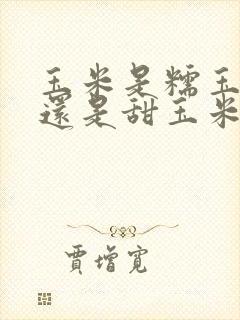 玉米是糯玉
還是甜玉米
賈增寬